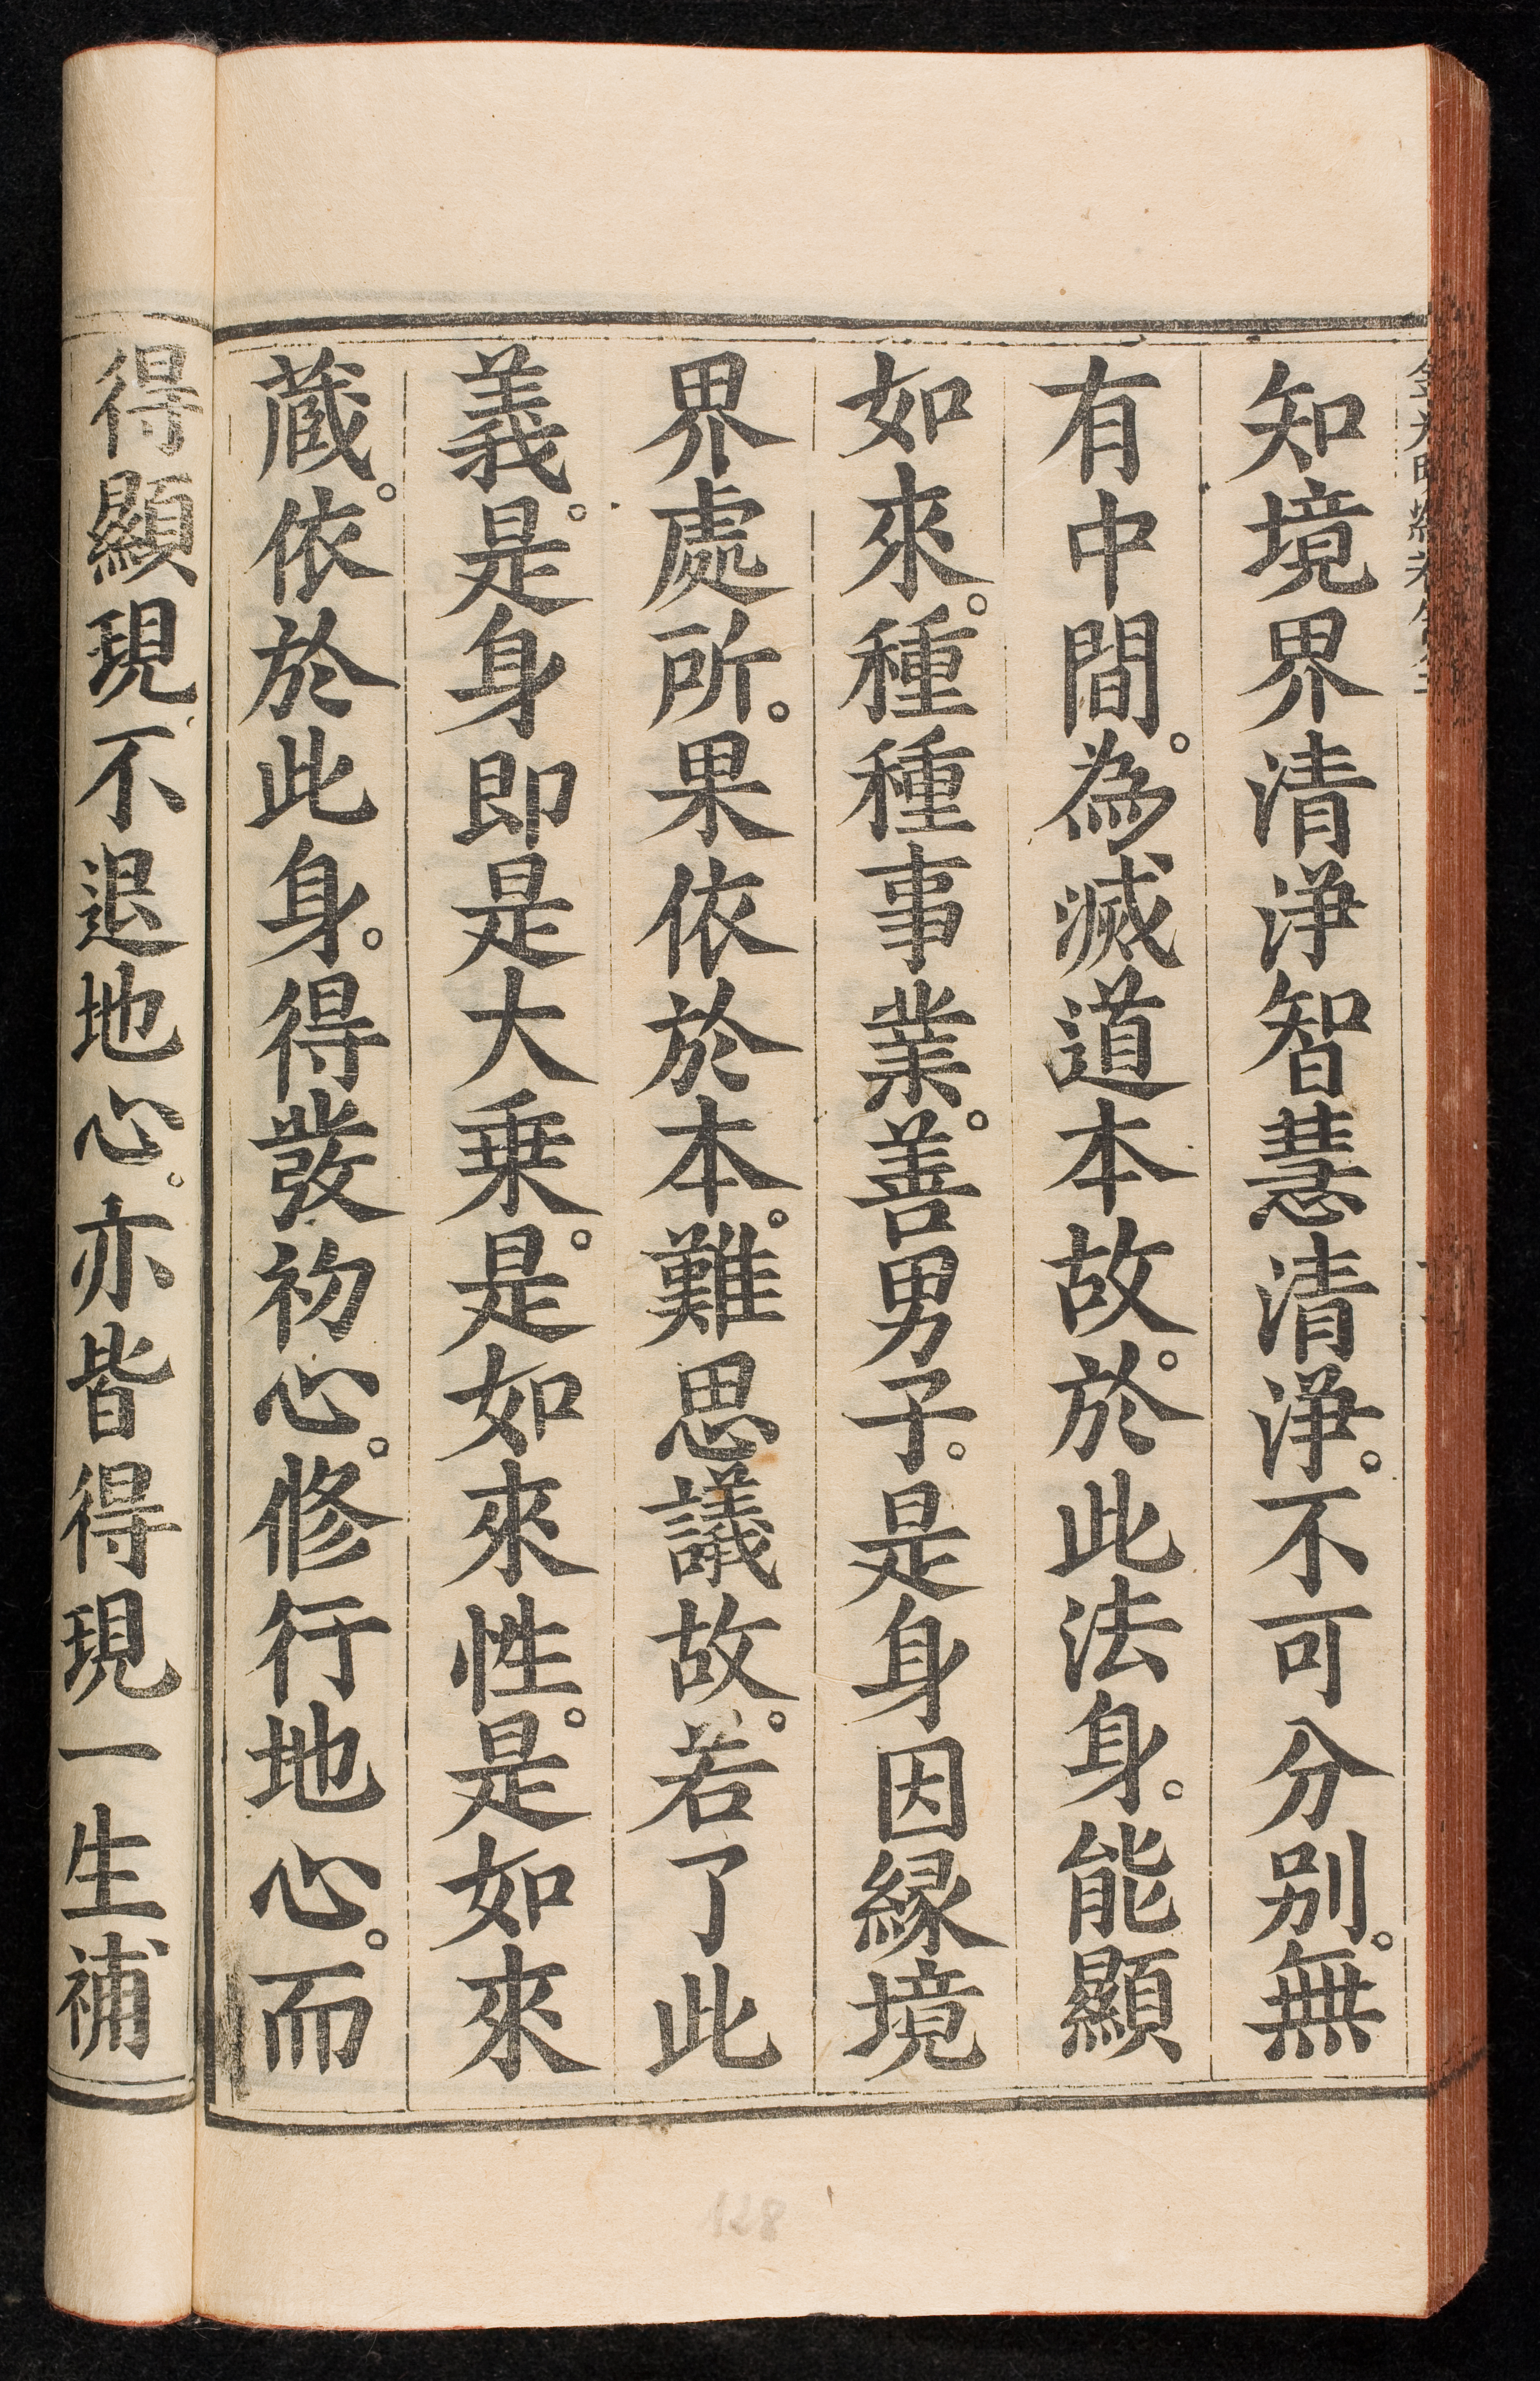 知境界清淨智慧清淨。不可分别。無
有中間。為滅道本故。於此法身。能顯
如來。種種事業。善男子。是身因緣境
界處所。果依於本。難思議故。若了此
義。是身即是大乗。是如來性。是如來
蔵。依於此身。得發初心。修行地心。而
得顯現。不退地心。亦皆得現一生補
128